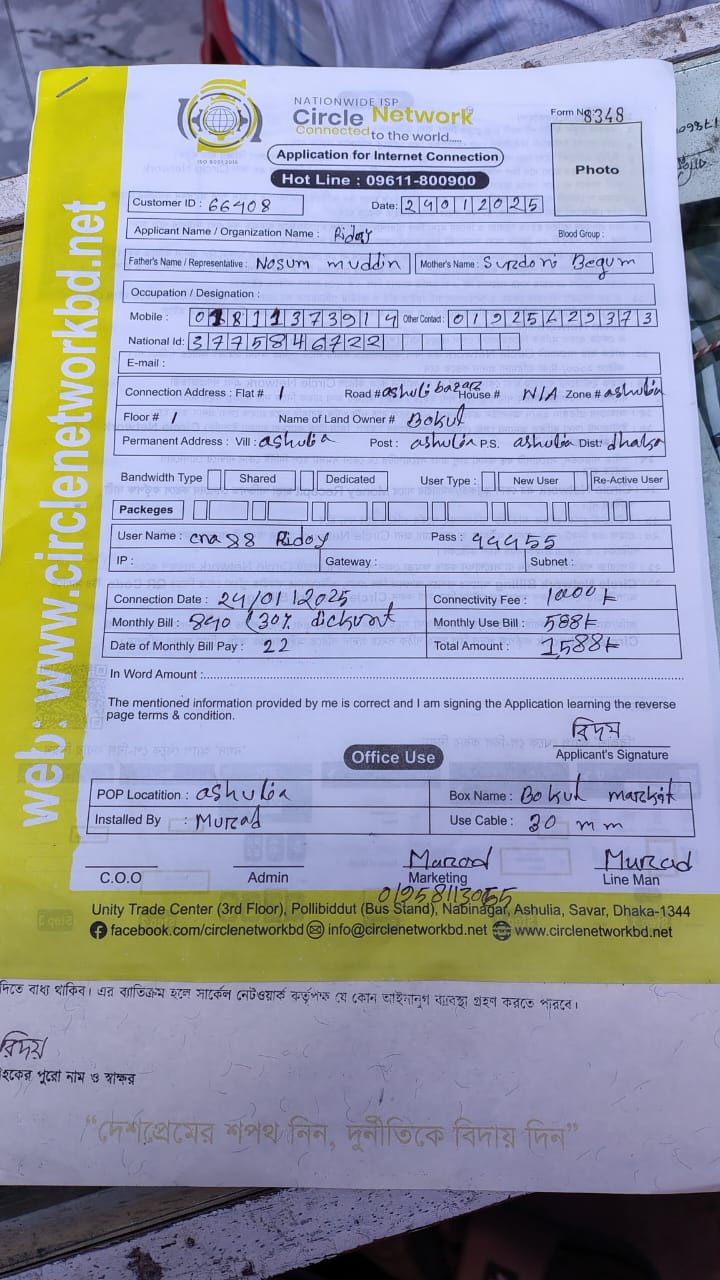 NATIONWIDE ISP
Circle Network
Connected to the world.....
ISO 9001:2015
Application for Internet Connection
Hot Line : 09611-800900
Form No 8348
Photo
Customer ID : 66408
Date: 24012025
Applicant Name / Organization Name : Ridoy
Blood Group :
Father's Name / Representative : Nosum muddin Mother's Name : Surdoni Begum
Occupation / Designation :
Mobile : 01811373914 Other Contact : 01925629373
National Id: 3775846722
E-mail :
Connection Address : Flat # 1 Road # ashuli bazar House # N/A Zone # ashulia
Floor # 1 Name of Land Owner # Bokul
Permanent Address : Vill : ashulia Post : ashulia P.S. ashulia Dist: dhaka
Bandwidth Type Shared Dedicated User Type : New User Re-Active User
Packeges
User Name : cna88 Ridoy Pass : 44455
IP : Gateway : Subnet :
Connection Date : 24/01/2025 Connectivity Fee : 1000 t
Monthly Bill : 840 (30% dickunt Monthly Use Bill : 588t
Date of Monthly Bill Pay : 22 Total Amount : 1,588t
In Word Amount :
The mentioned information provided by me is correct and I am signing the Application learning the reverse
page terms & condition.
রিদয়
Applicant's Signature
Office Use
POP Locatition : ashulia Box Name : Bokul markit
Installed By : Murad Use Cable : 30 mm
Murad Murad
C.O.O Admin Marketing Line Man
01958113055
Unity Trade Center (3rd Floor), Pollibiddut (Bus Stand), Nabinagar, Ashulia, Savar, Dhaka-1344
facebook.com/circlenetworkbd info@circlenetworkbd.net www.circlenetworkbd.net
web : www.circlenetworkbd.net
দিতে বাধ্য থাকিব। এর ব্যতিক্রম হলে সার্কেল নেটওয়ার্ক কর্তৃপক্ষ যে কোন আইনানুগ ব্যবস্থা গ্রহণ করতে পারবে।
রিদয়
হকের পুরো নাম ও স্বাক্ষর
“দেশপ্রেমের শপথ নিন, দুর্নীতিকে বিদায় দিন”